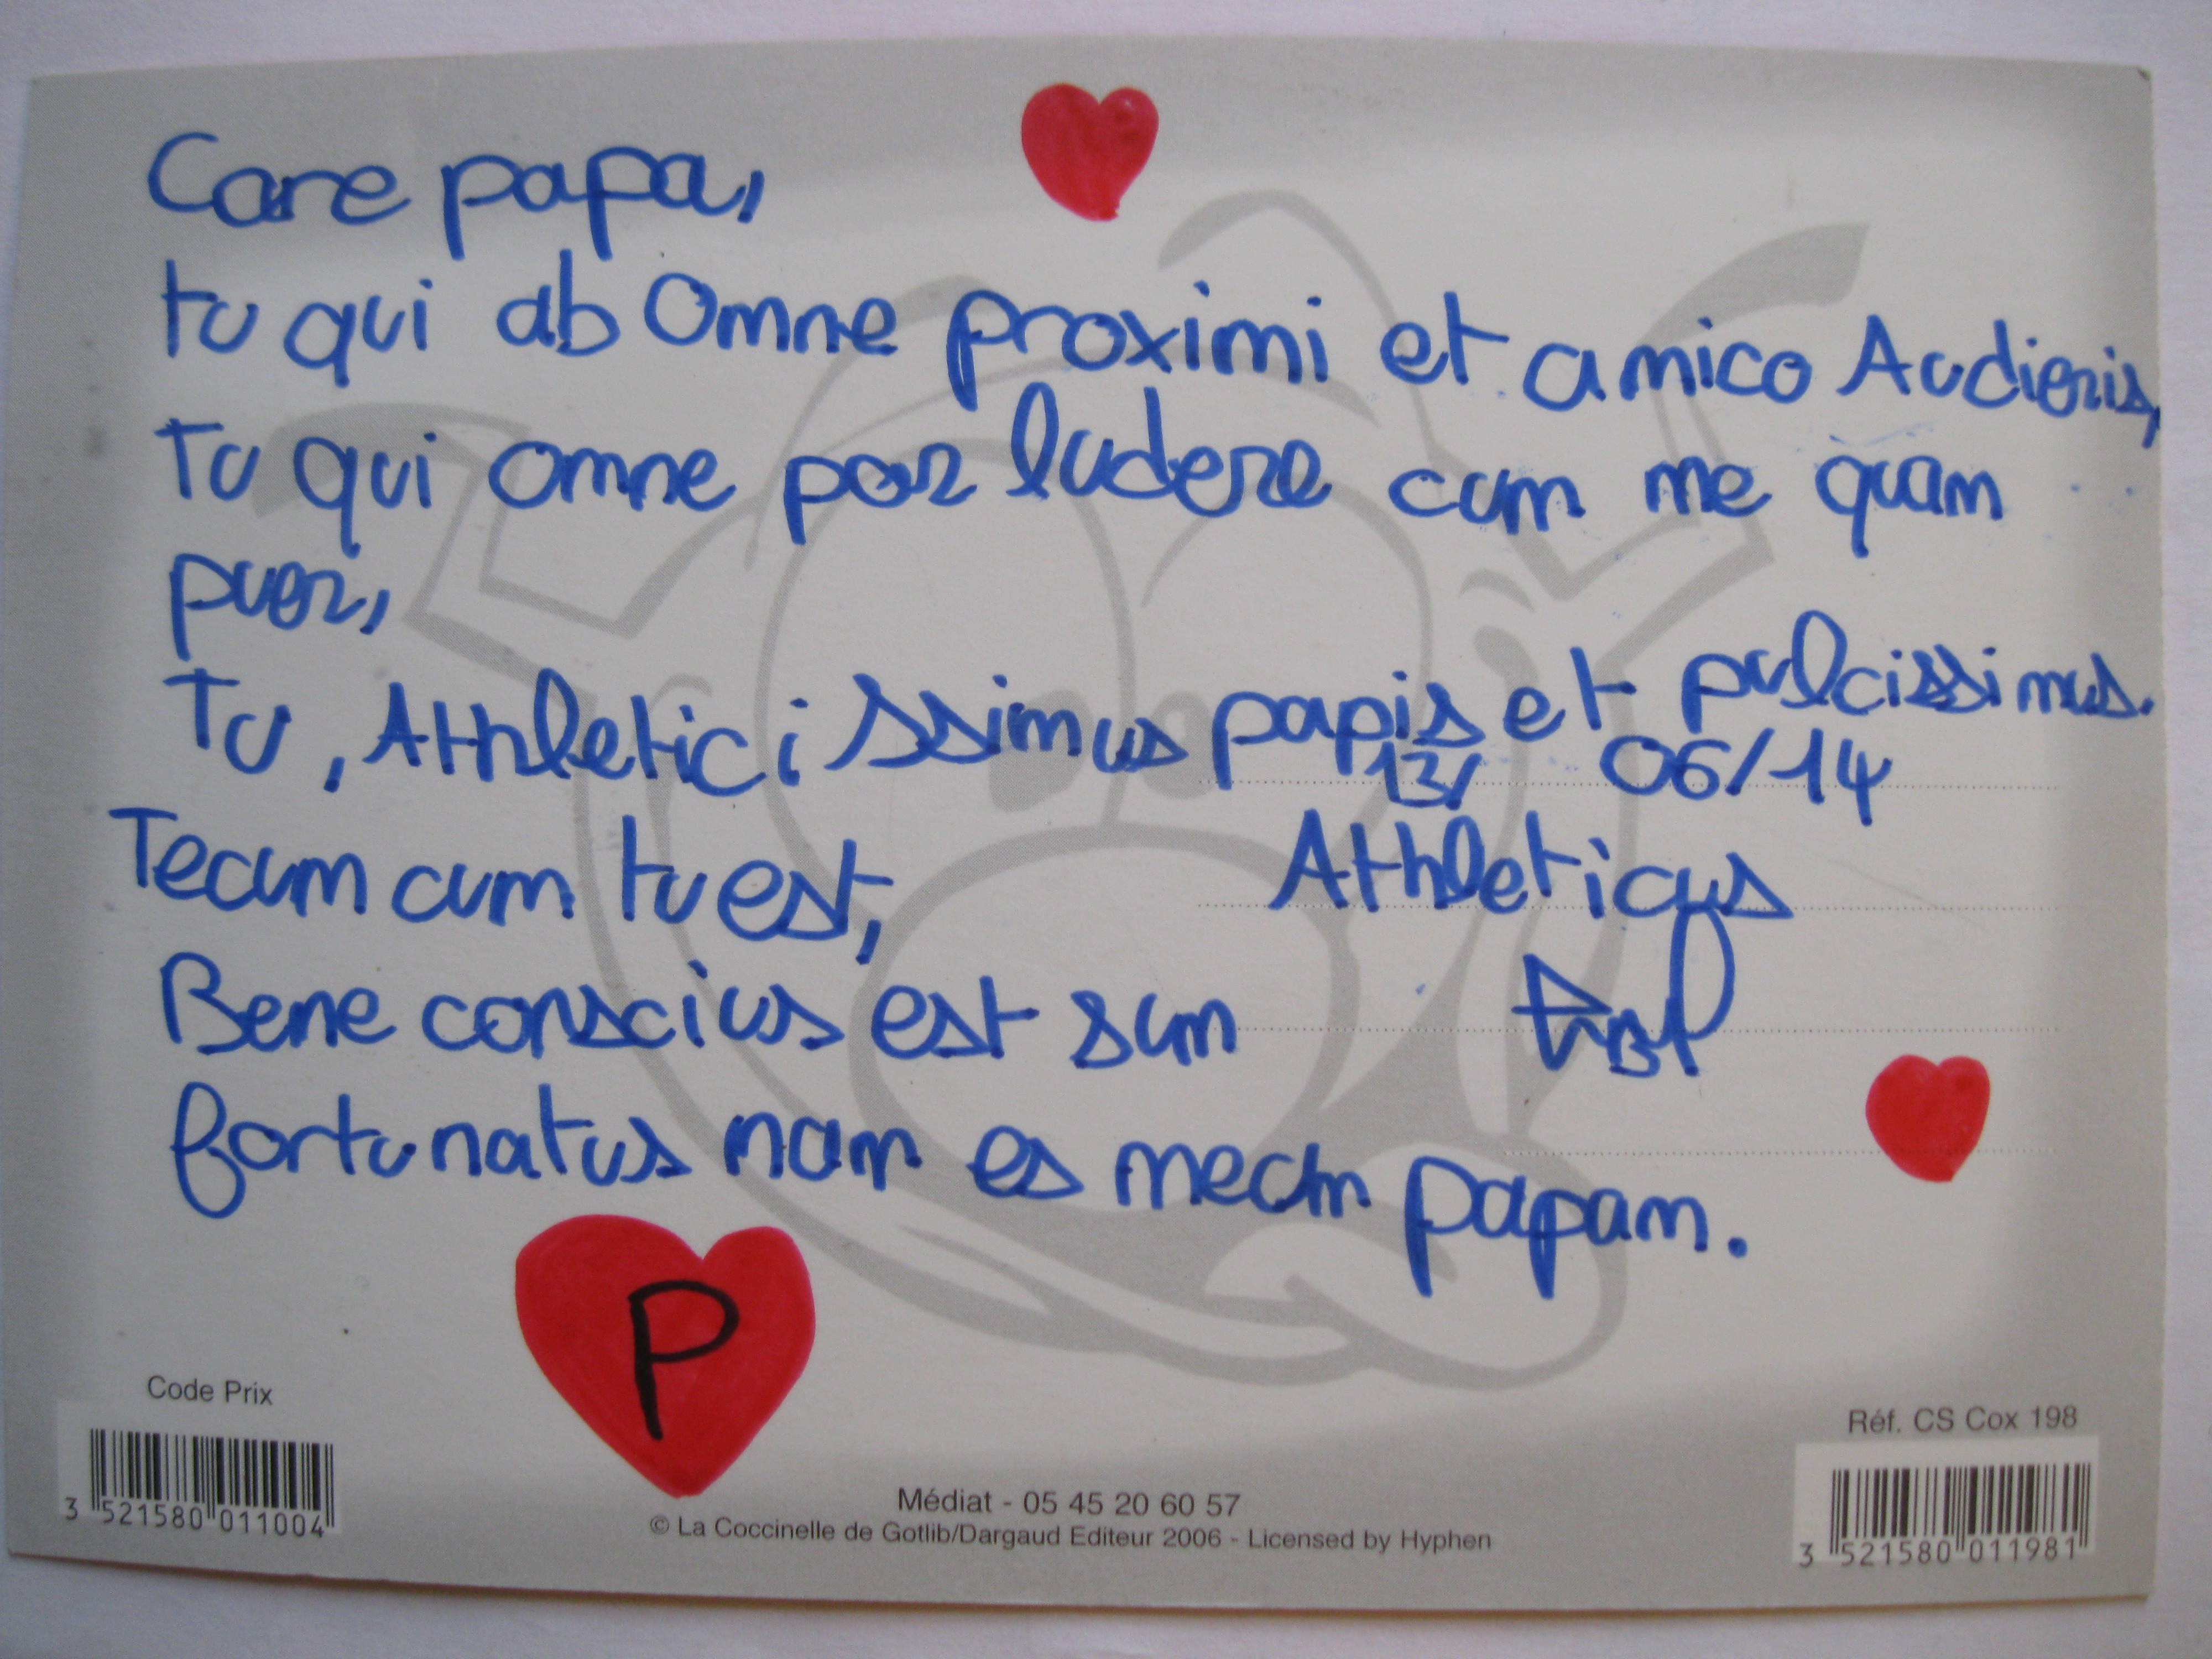 Care papa,
tu qui ab Omne proximi et amico Audieris,
Tu qui omne par ludere cum me quam
puer,
Tu, Athleticissimus papis et pulcissimus.
13/ 06/14
Tecum cum tu est,
Athleticus
Bene conscius est sum
fortunatus nam es mecum papam.
P
Code Prix
Réf. CS Cox 198
3 521580 011004
Médiat - 05 45 20 60 57
© La Coccinelle de Gotlib/Dargaud Editeur 2006 - Licensed by Hyphen
3 521580 011981